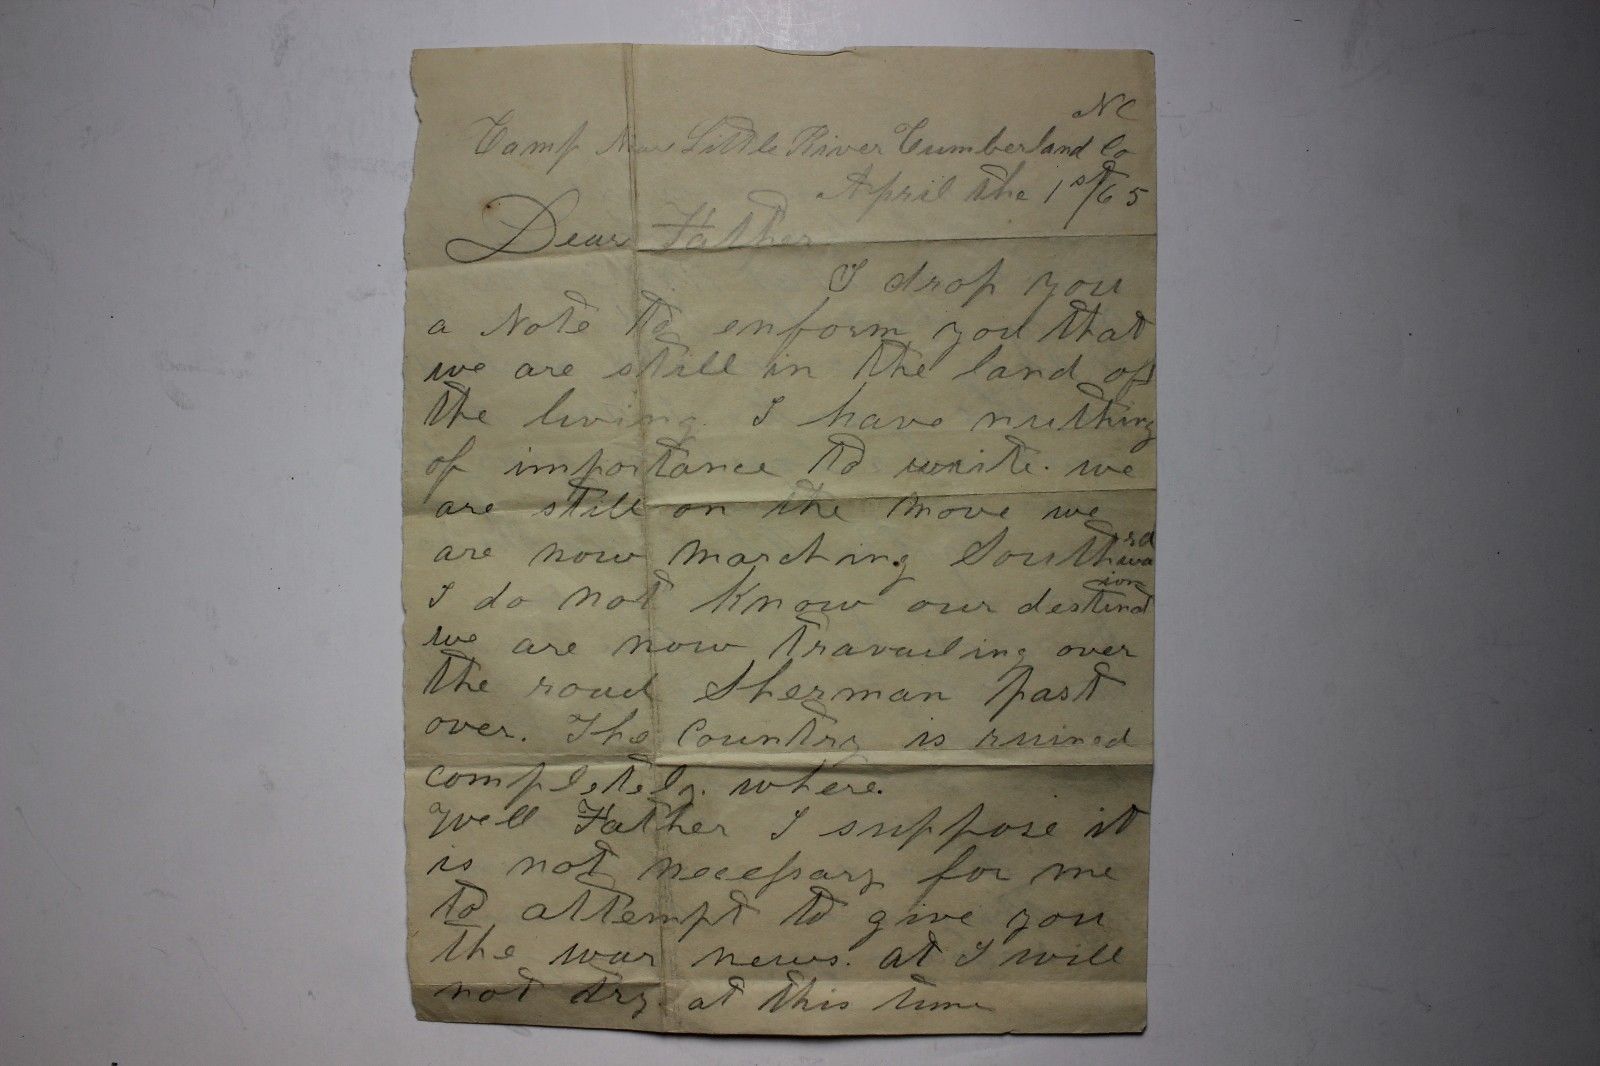 NC
Camp Near Little River Cumberland Co
April the 1st/65
Dear Father
I drop you
a Note to enform you that
we are still in the land of
the living. I have nuthing
of importance to write. we
are still on the move we
are now marching Southward
I do not Know our destination
we are now travailing over
the road Sherman past
over. The Country is ruined
completely. where.
Well Father I suppose it
is not necessary for me
to attempt to give you
the war news. at I will
not try. at this time